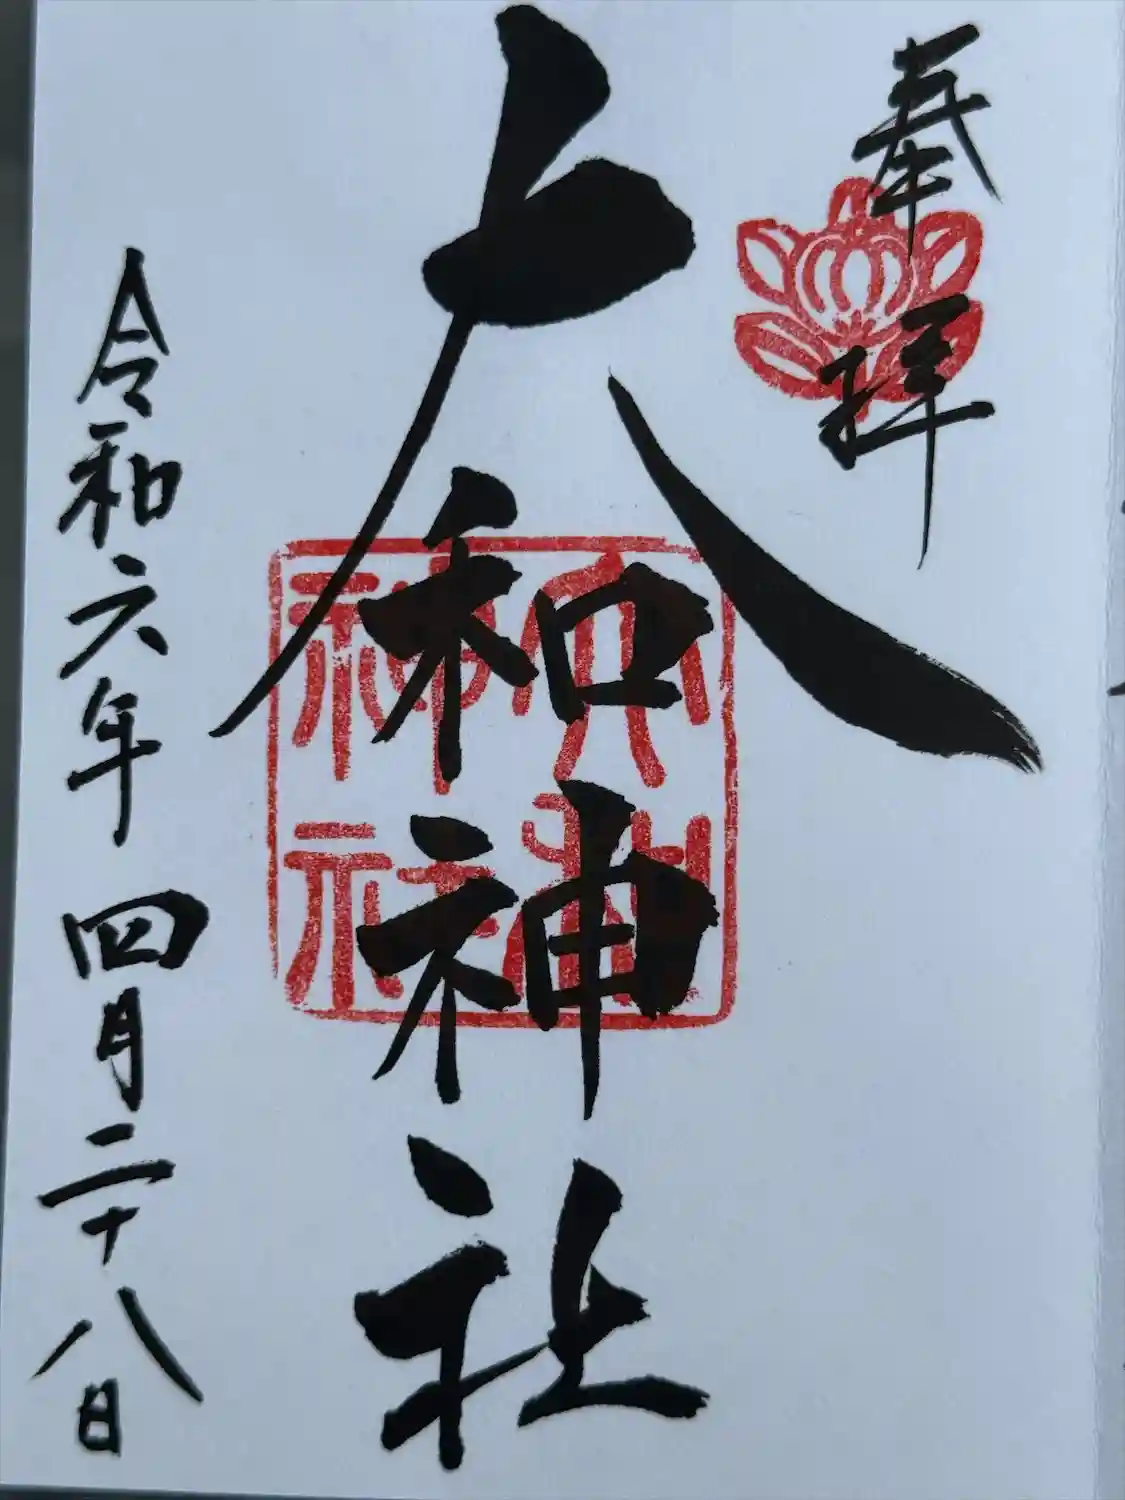 奉拝
大和神社
大和
神社
令和六年 四月二十八日